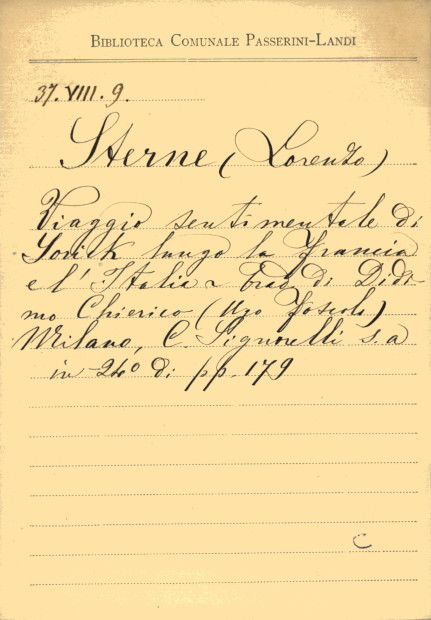 BIBLIOTECA COMUNALE PASSERINI-LANDI
37.VIII.9.
Sterne (Lorenzo)
Viaggio sentimentale di
Yorick lungo la Francia
e l'Italia - Trad. di Didi-
mo Chierico (Ugo Foscolo)
Milano, C. Signorelli s.a
in 24º di pp. 179
C